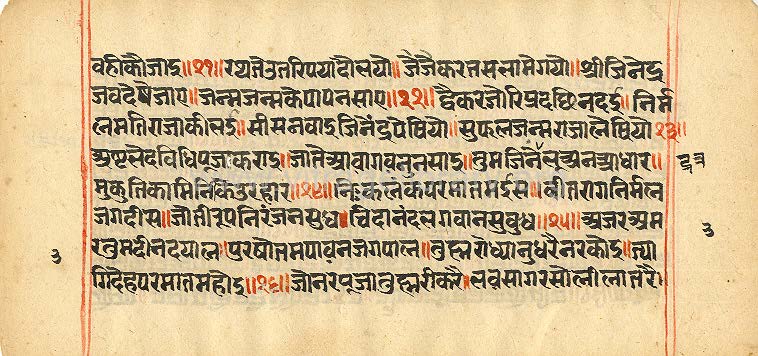 वहीकौजाइ॥२१॥रथतैउतरिपयादौलयो॥जैजैकरतसलामेगयो॥श्रीजिनेंद्र
जबदेषेजाए॥जन्मजन्मकेपापनसाए॥२२॥द्वैकरजोरिप्रदछिनदई॥निर्म
लमतिराजाकीलई॥सीसनवाइजिनंदपेषियो॥सुफलजन्मराजालेषियो२३॥
अष्टलेदविधिपूजकराइ॥जातैआवागवनुनसाइ॥तुमजिनैसअनआधार॥
मुकुतिकामिनिकेउरहार॥२४॥निःकलंकपरमातमईस॥वीतरागनिर्मल
जगदीस॥जोतीरूपनिरंजनसुध॥चिदानंदलगवानसुबुध॥२५॥अजरअम
रतुमदीनदयाल॥पुरषोतमपावनजगपाल॥तुह्मरोध्यानुधरैनरकोइ॥त्या
गिदेहपरमातमहोइ॥२६॥जोनरपूजातुह्मरीकरै।लवसागरसोलीलातरै।
३
३